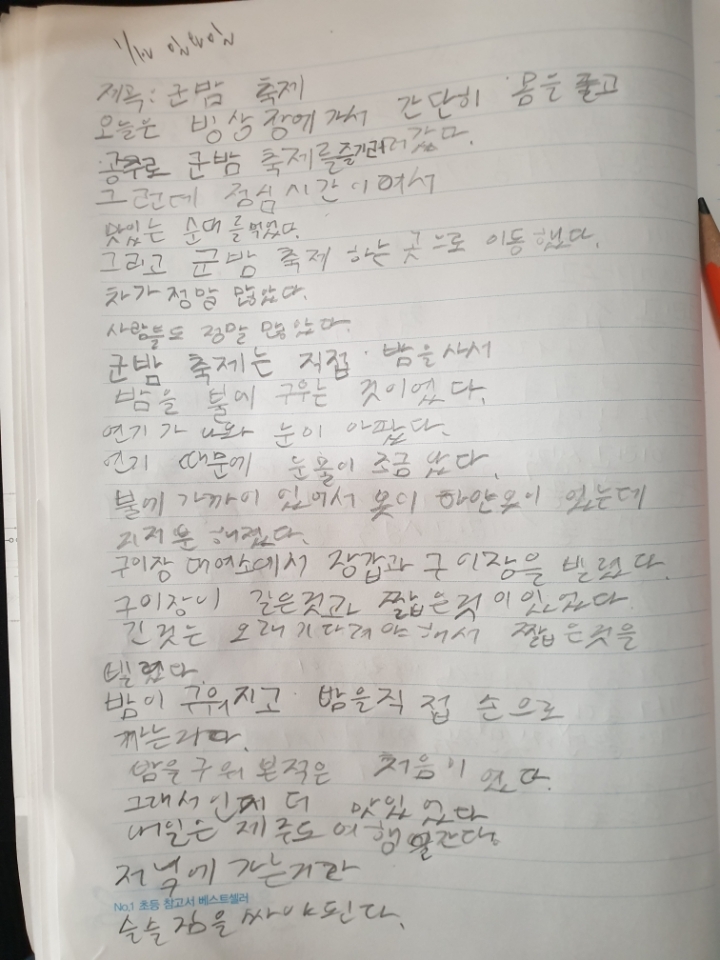 1/12 일요일
제목: 군밤 축제
오늘은 빙상장에가서 간단히 몸을 풀고
공주로 군밤 축제를즐기러갔다.
그런데 점심시간이여서
맛있는 순대를먹었다.
그리고 군밤 축제 하는곳으로 이동했다.
차가정말 많았다.
사람들도 정말 많았다.
군밤 축제는 직접 밤을사서
밤을 불에 구우는 것이었다.
연기가 나와 눈이 아팠다.
연기 때문에 눈물이 조금 났다.
불에가까이 있어서 옷이 하얀옷이 었는데
지저분해졌다.
구이장 대여소에서 장갑과 구이장을 빌렸다.
구이장이 긴은것과 짧은것이있었다
긴것는 오래기다려야해서 짧은것을
빌렸다.
밤이구워지고 밤을직접 손으로
까는거다.
밤을구워본적은 처음이었다.
그래서인지 더 맛있었다
내일은 제주도여행을간다.
저녁에 가는거라
No.1 초등 참고서 베스트셀러
슬슬짐을싸야된다.